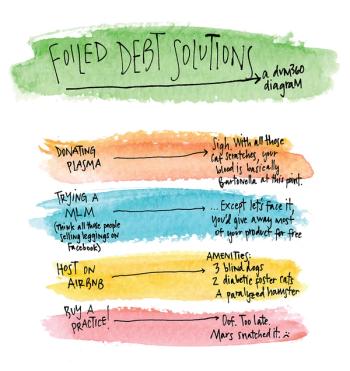 FOILED DEBT SOLUTIONS
a dvm360
diagram
DONATING
PLASMA
Sigh. With all those
cat scratches, your
blood is basically
Bartonella at this point.
TRYING A
MLM
(Think all those people
selling leggings on
Facebook)
...Except let's face it,
you'd give away most
of your product for free
HOST ON
AIRBNB
AMENITIES:
3 blind dogs
2 diabetic foster cats
A paralyzed hamster
BUY A
PRACTICE!
Oof. Too late.
Mars snatched it. :(